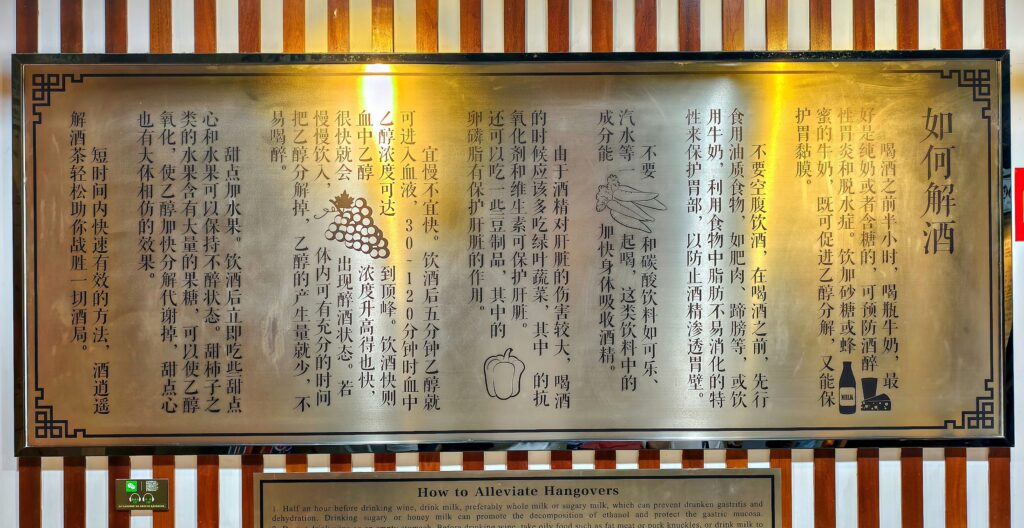 如何解酒
喝酒之前半小时，喝瓶牛奶，最
好是纯奶或者含糖的，可预防酒醉
性胃炎和脱水症。饮加砂糖或蜂
蜜的牛奶，既可促进乙醇分解，又能保
护胃黏膜。
MILK
不要空腹饮酒，在喝酒之前，先行
食用油质食物，如肥肉、蹄膀等，或饮
用牛奶，利用食物中脂肪不易消化的特
性来保护胃部，以防止酒精渗透胃壁。
不要和碳酸饮料如可乐、
汽水等一起喝，这类饮料中的
成分能加快身体吸收酒精。
由于酒精对肝脏的伤害较大，喝酒
的时候应该多吃绿叶蔬菜，其中的抗
氧化剂和维生素可保护肝脏。
还可以吃一些豆制品，其中的
卵磷脂有保护肝脏的作用。
宜慢不宜快。饮酒后五分钟乙醇就
可进入血液，30-120分钟时血中
乙醇浓度可达到顶峰。饮酒快则
血中乙醇浓度升高得也快，
很快就会出现醉酒状态。若
慢慢饮入，体内可有充分的时间
把乙醇分解掉，乙醇的产生量就少，不
易喝醉。
甜点加水果。饮酒后立即吃些甜点
心和水果可以保持不醉状态。甜柿子之
类的水果含有大量的果糖，可以使乙醇
氧化，使乙醇加快分解代谢掉，甜点心
也有大体相伤的效果。
短时间内快速有效的方法，酒逍遥
解酒茶轻松助你战胜一切酒局。
How to Alleviate Hangovers
1. Half an hour before drinking wine, drink milk, preferably whole milk or sugary milk, which can prevent drunken gastritis and
dehydration. Drinking sugary or honey milk can promote the decomposition of ethanol and protect the gastric mucosa.
before drinking wine, take oily food such as fat meat or pork knuckles, or drink milk to